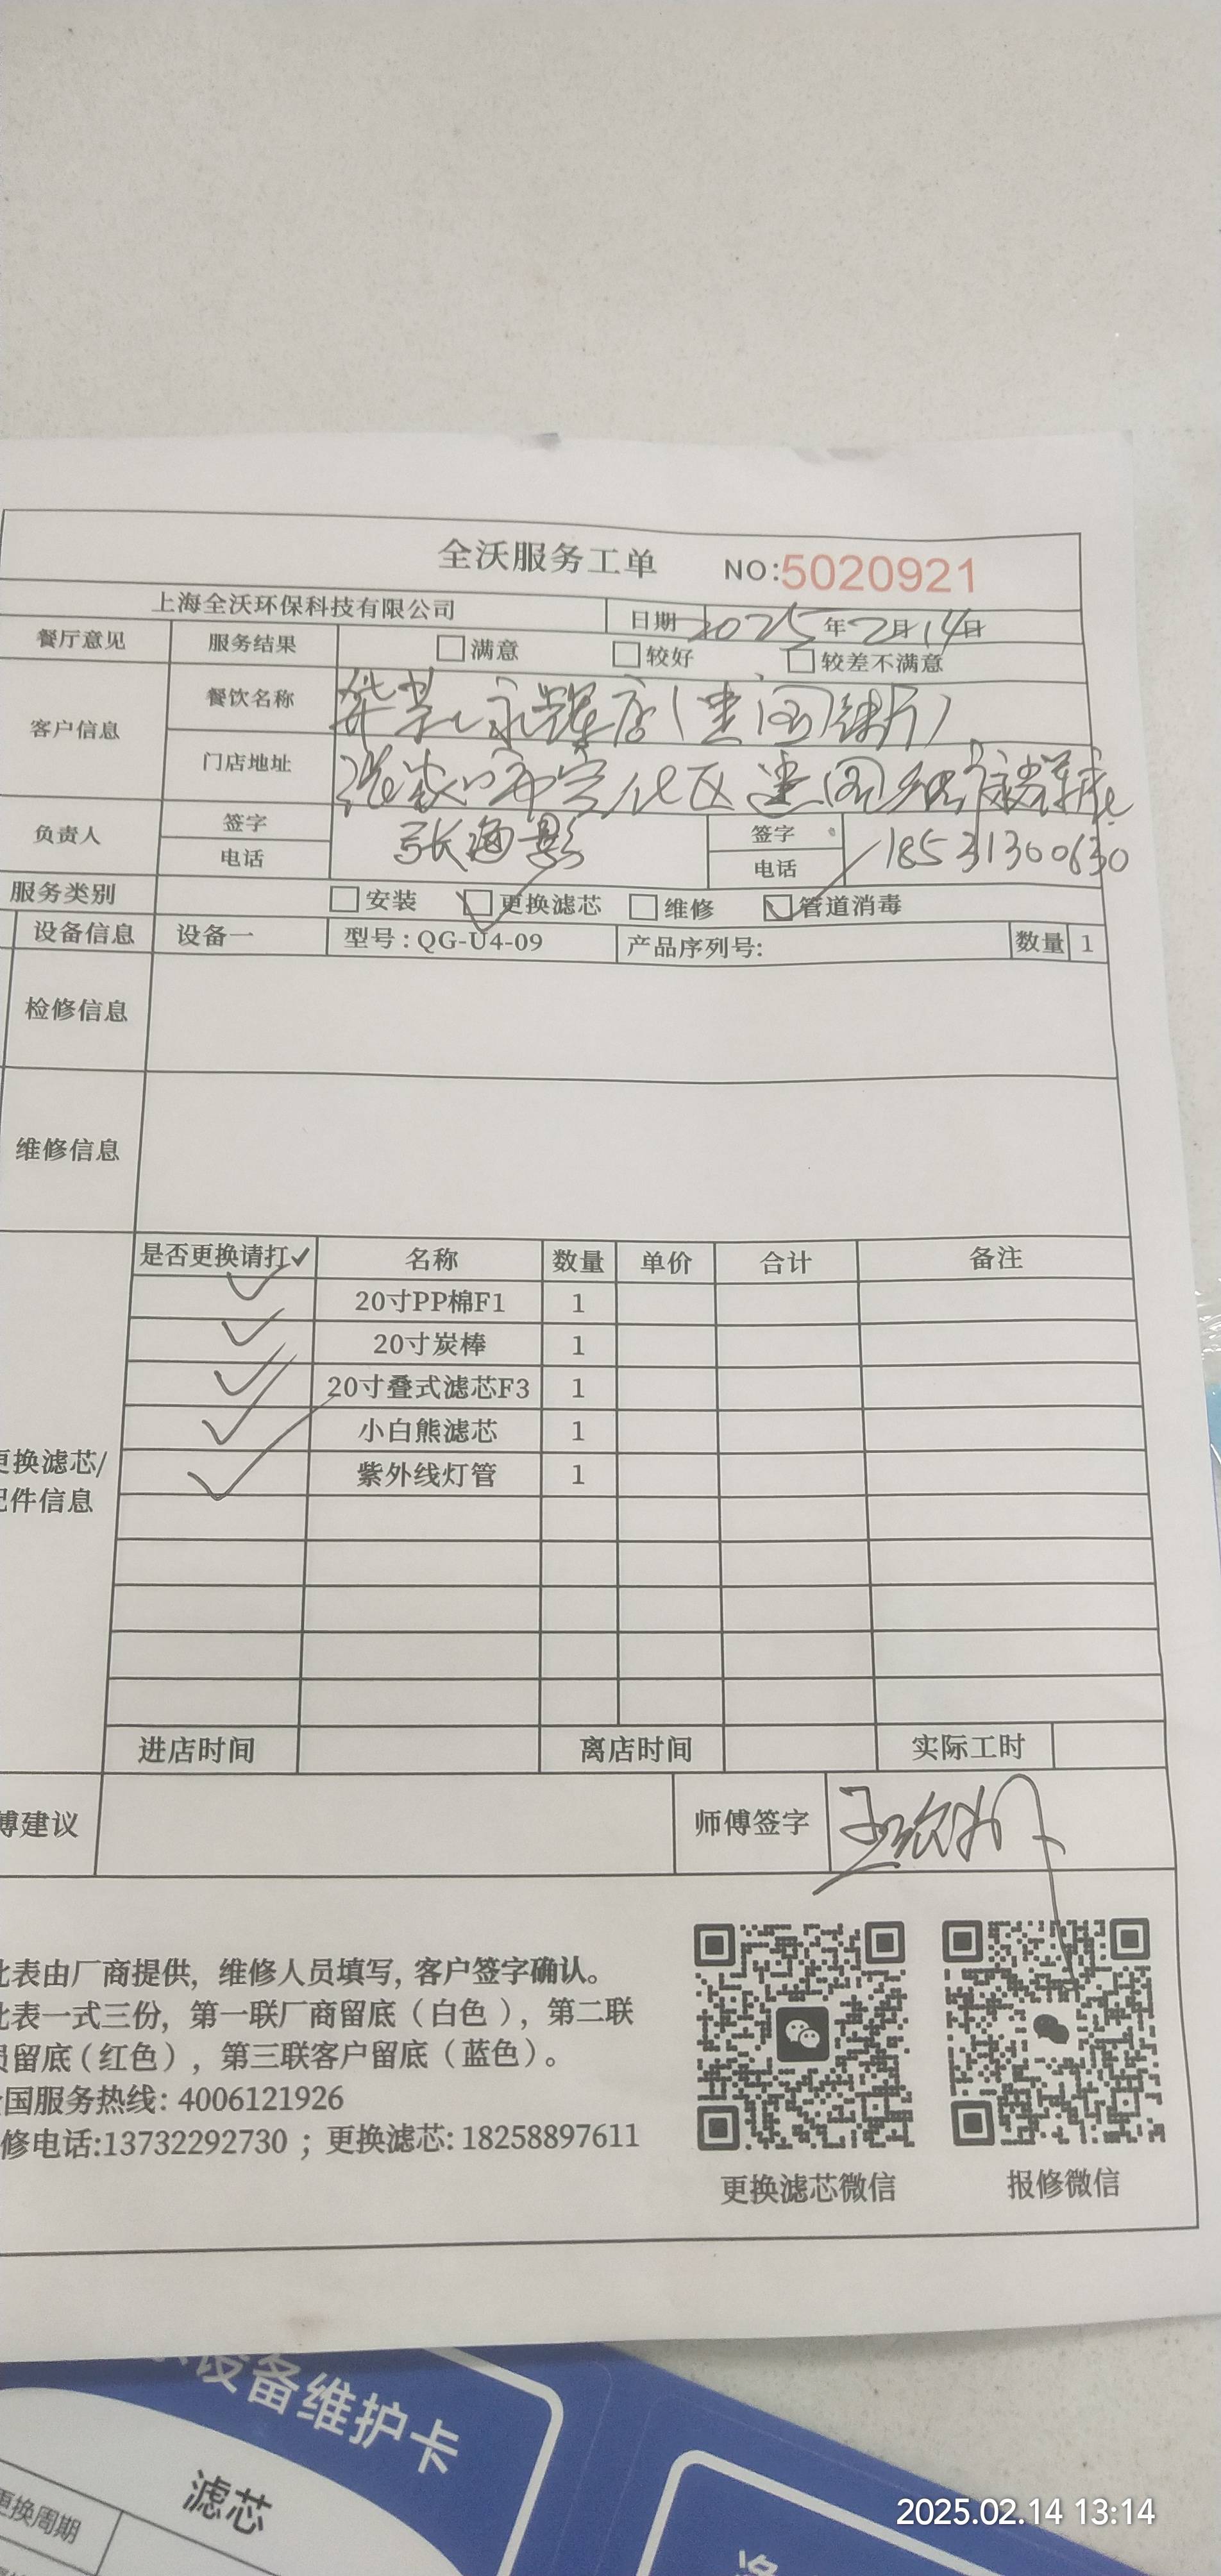 全沃服务工单 NO:5020921
上海全沃环保科技有限公司 日期 2025年2月14日
餐厅意见 服务结果 满意 较好 较差不满意
客户信息 餐饮名称 永辉店
门店地址 张家口市宣化区
负责人 签字 张海影 签字
电话 电话 18531300630
服务类别 安装 更换滤芯 维修 管道消毒
设备信息 设备一 型号:QG-U4-09 产品序列号: 数量 1
检修信息
维修信息
是否更换请打✓ 名称 数量 单价 合计 备注
20寸PP棉F1 1
20寸炭棒 1
20寸叠式滤芯F3 1
小白熊滤芯 1
紫外线灯管 1
更换滤芯/
配件信息
进店时间 离店时间 实际工时
傅建议 师傅签字
此表由厂商提供,维修人员填写,客户签字确认。
此表一式三份,第一联厂商留底(白色),第二联
员留底(红色),第三联客户留底(蓝色)。
全国服务热线:4006121926
修电话:13732292730;更换滤芯:18258897611
更换滤芯微信 报修微信
设备维护卡
滤芯
更换周期
2025.02.14 13:14